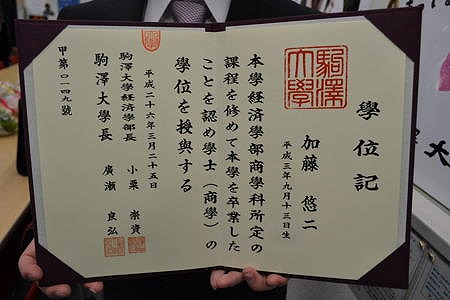 學位記
駒澤大學
加藤 悠二
平成三年九月十三日生
本學経済學部商學科所定の
課程を修めて本學を卒業した
ことを認め學士（商學）の
學位を授與する
平成二十六年三月二十五日
駒澤大學経済學部長 小栗 崇資
駒澤大學長 廣瀬 良弘
甲第〇一四九號